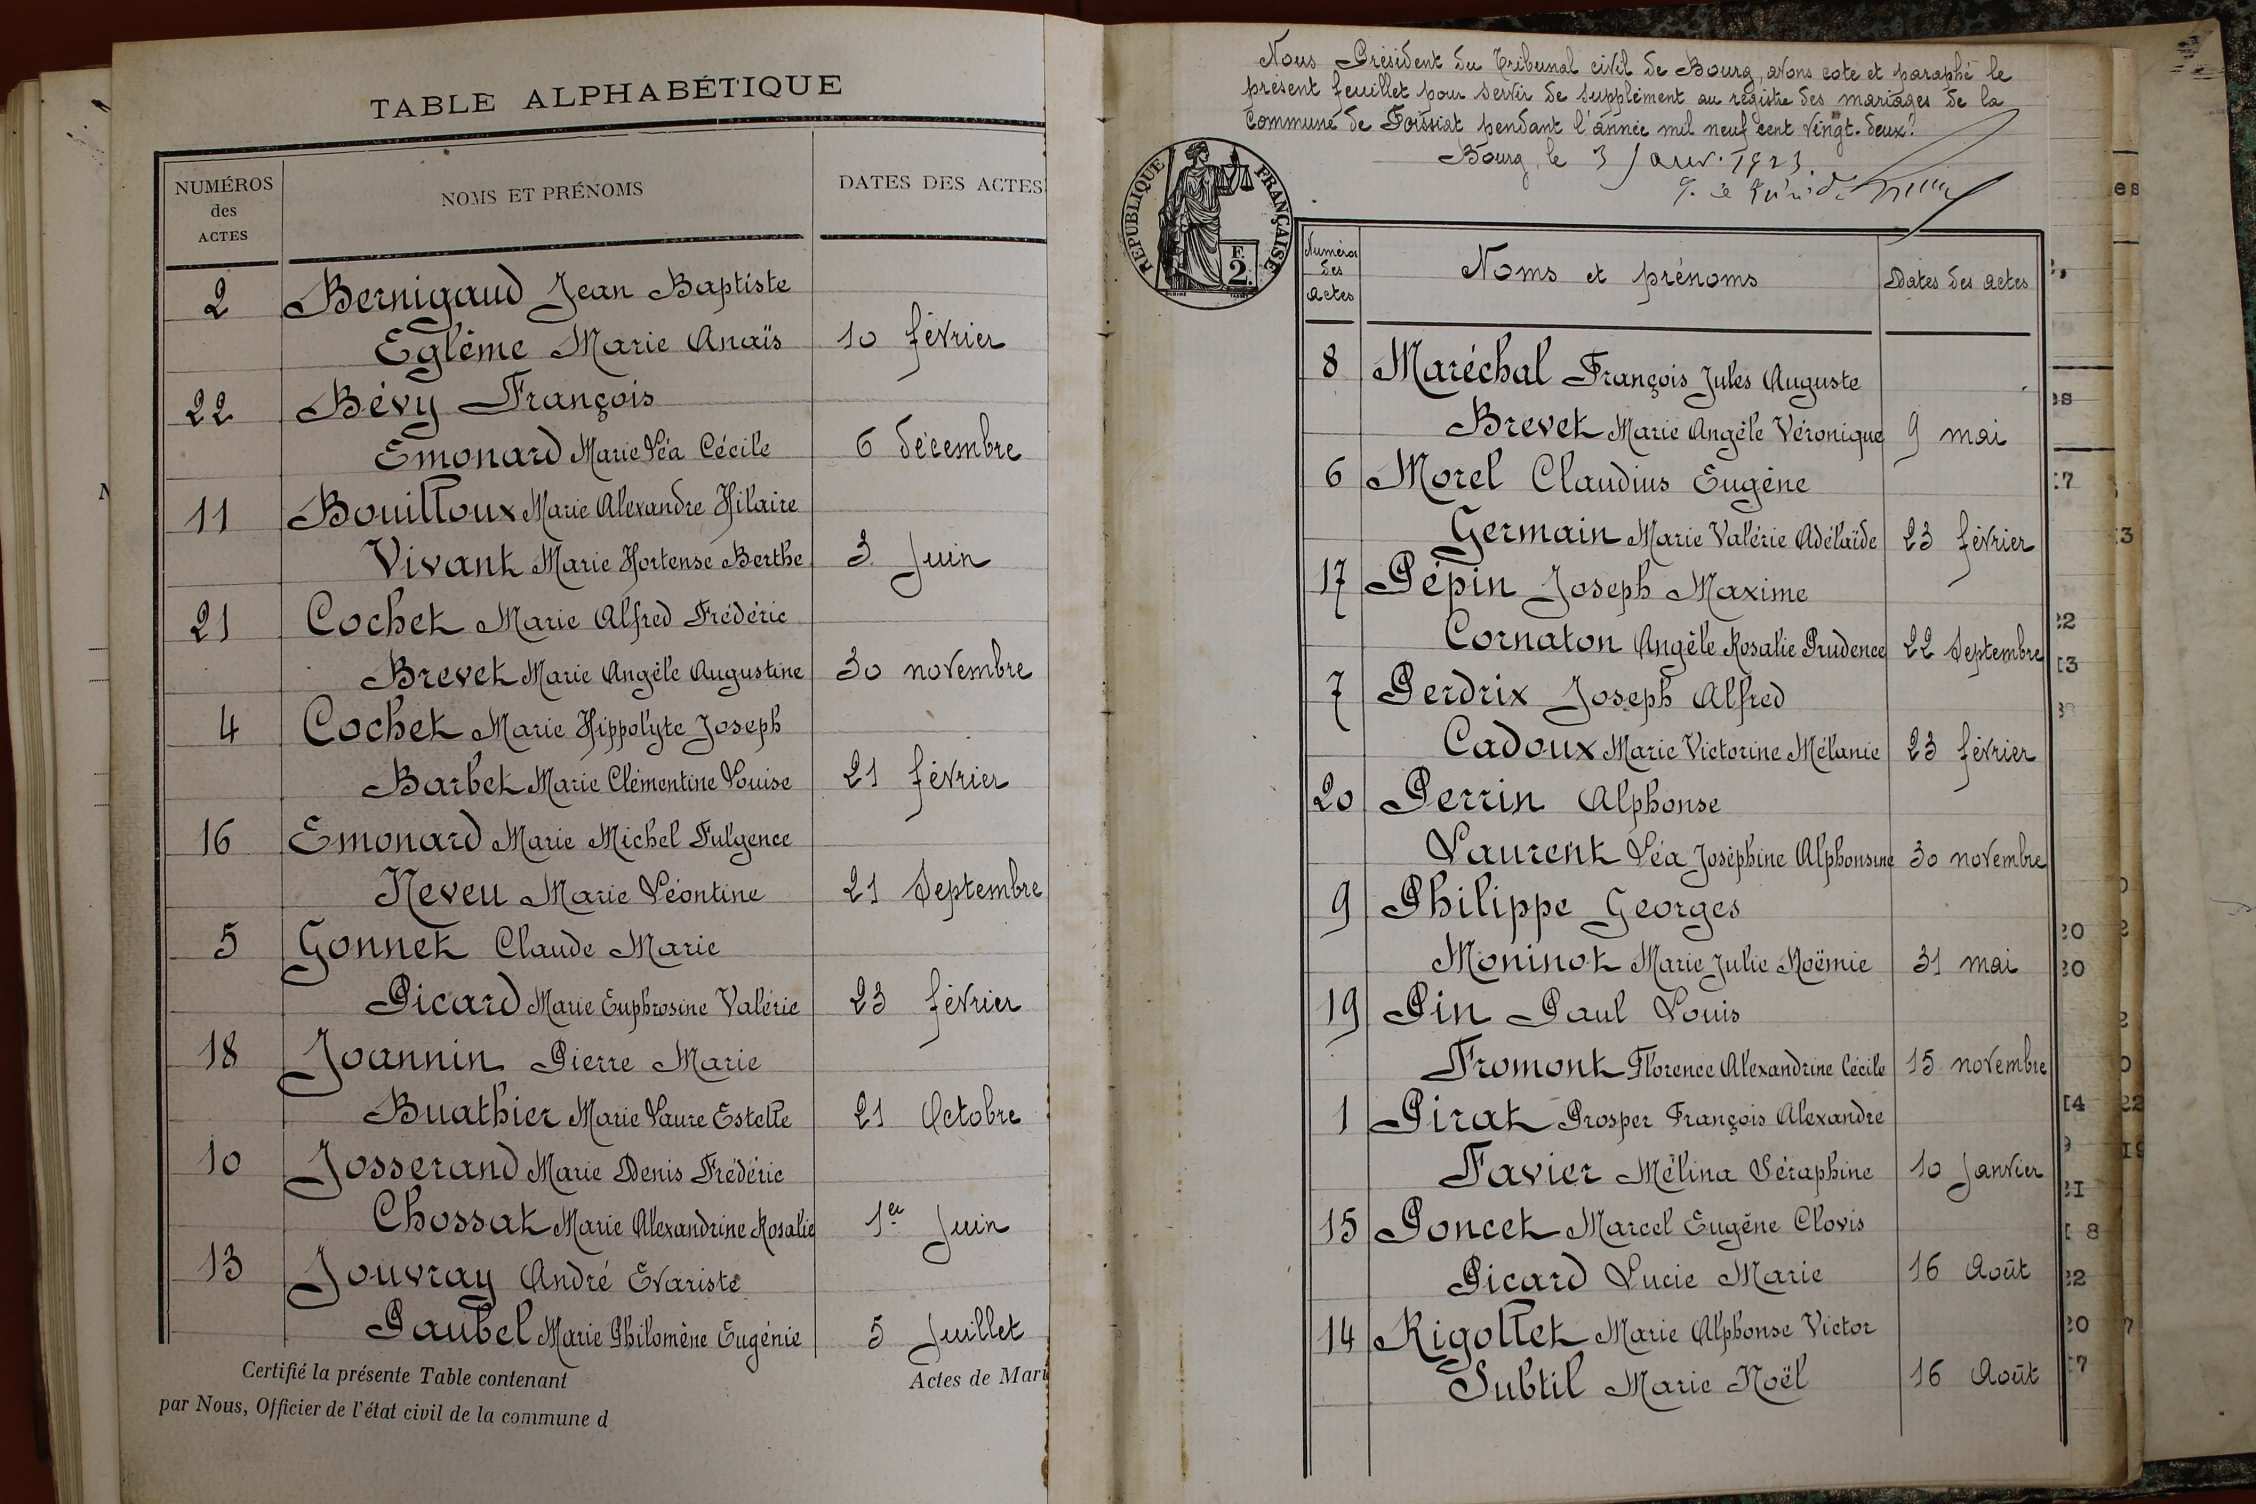 TABLE ALPHABÉTIQUE
NUMÉROS
des
ACTES
NOMS ET PRÉNOMS
DATES DES ACTES
2 Bernigaud Jean Baptiste
Eglème Marie Anaïs 10 février
22 Bévy François
Emonard Marie Léa Cécile 6 décembre
11 Bouilloux Marie Alexandre Hilaire
Vivant Marie Hortense Berthe 3 Juin
21 Cochet Marie Alfred Frédéric
Brevet Marie Angèle Augustine 30 novembre
4 Cochet Marie Hippolyte Joseph
Barbet Marie Clémentine Louise 21 février
16 Emonard Marie Michel Fulgence
Neveu Marie Léontine 21 Septembre
5 Gonnet Claude Marie
Picard Marie Euphrosine Valérie 23 février
18 Joannin Pierre Marie
Buathier Marie Laure Estelle 21 Octobre
10 Josserand Marie Denis Frédéric
Chossat Marie Alexandrine Rosalie 1er Juin
13 Jouvray André Evariste
Paubel Marie Philomène Eugénie 5 Juillet
Certifié la présente Table contenant Actes de Mari
par Nous, Officier de l'état civil de la commune d
Nous Président du Tribunal civil de Bourg, avons coté et paraphé le
présent feuillet pour servir de supplément au registre des mariages de la
Commune de Foissiat pendant l'année mil neuf cent vingt-deux.
Bourg, le 3 Janv. 1923
RÉPUBLIQUE FRANÇAISE
F.
2.
Numéros
des
actes
Noms et prénoms
Dates des actes
8 Maréchal François Jules Auguste
Brevet Marie Angèle Véronique 9 mai
6 Morel Claudius Eugène
Germain Marie Valérie Adélaïde 23 février
17 Pépin Joseph Maxime
Cornaton Angèle Rosalie Prudence 22 Septembre
7 Perdrix Joseph Alfred
Cadoux Marie Victorine Mélanie 23 février
20 Perrin Alphonse
Laurent Léa Joséphine Alphonsine 30 novembre
9 Philippe Georges
Moninot Marie Julie Noëmie 31 mai
19 Pin Paul Louis
Fromont Florence Alexandrine Cécile 15 novembre
1 Pirat Prosper François Alexandre
Favier Mélina Séraphine 10 Janvier
15 Poncet Marcel Eugène Clovis
Picard Lucie Marie 16 Août
14 Rigollet Marie Alphonse Victor
Subtil Marie Noël 16 Août